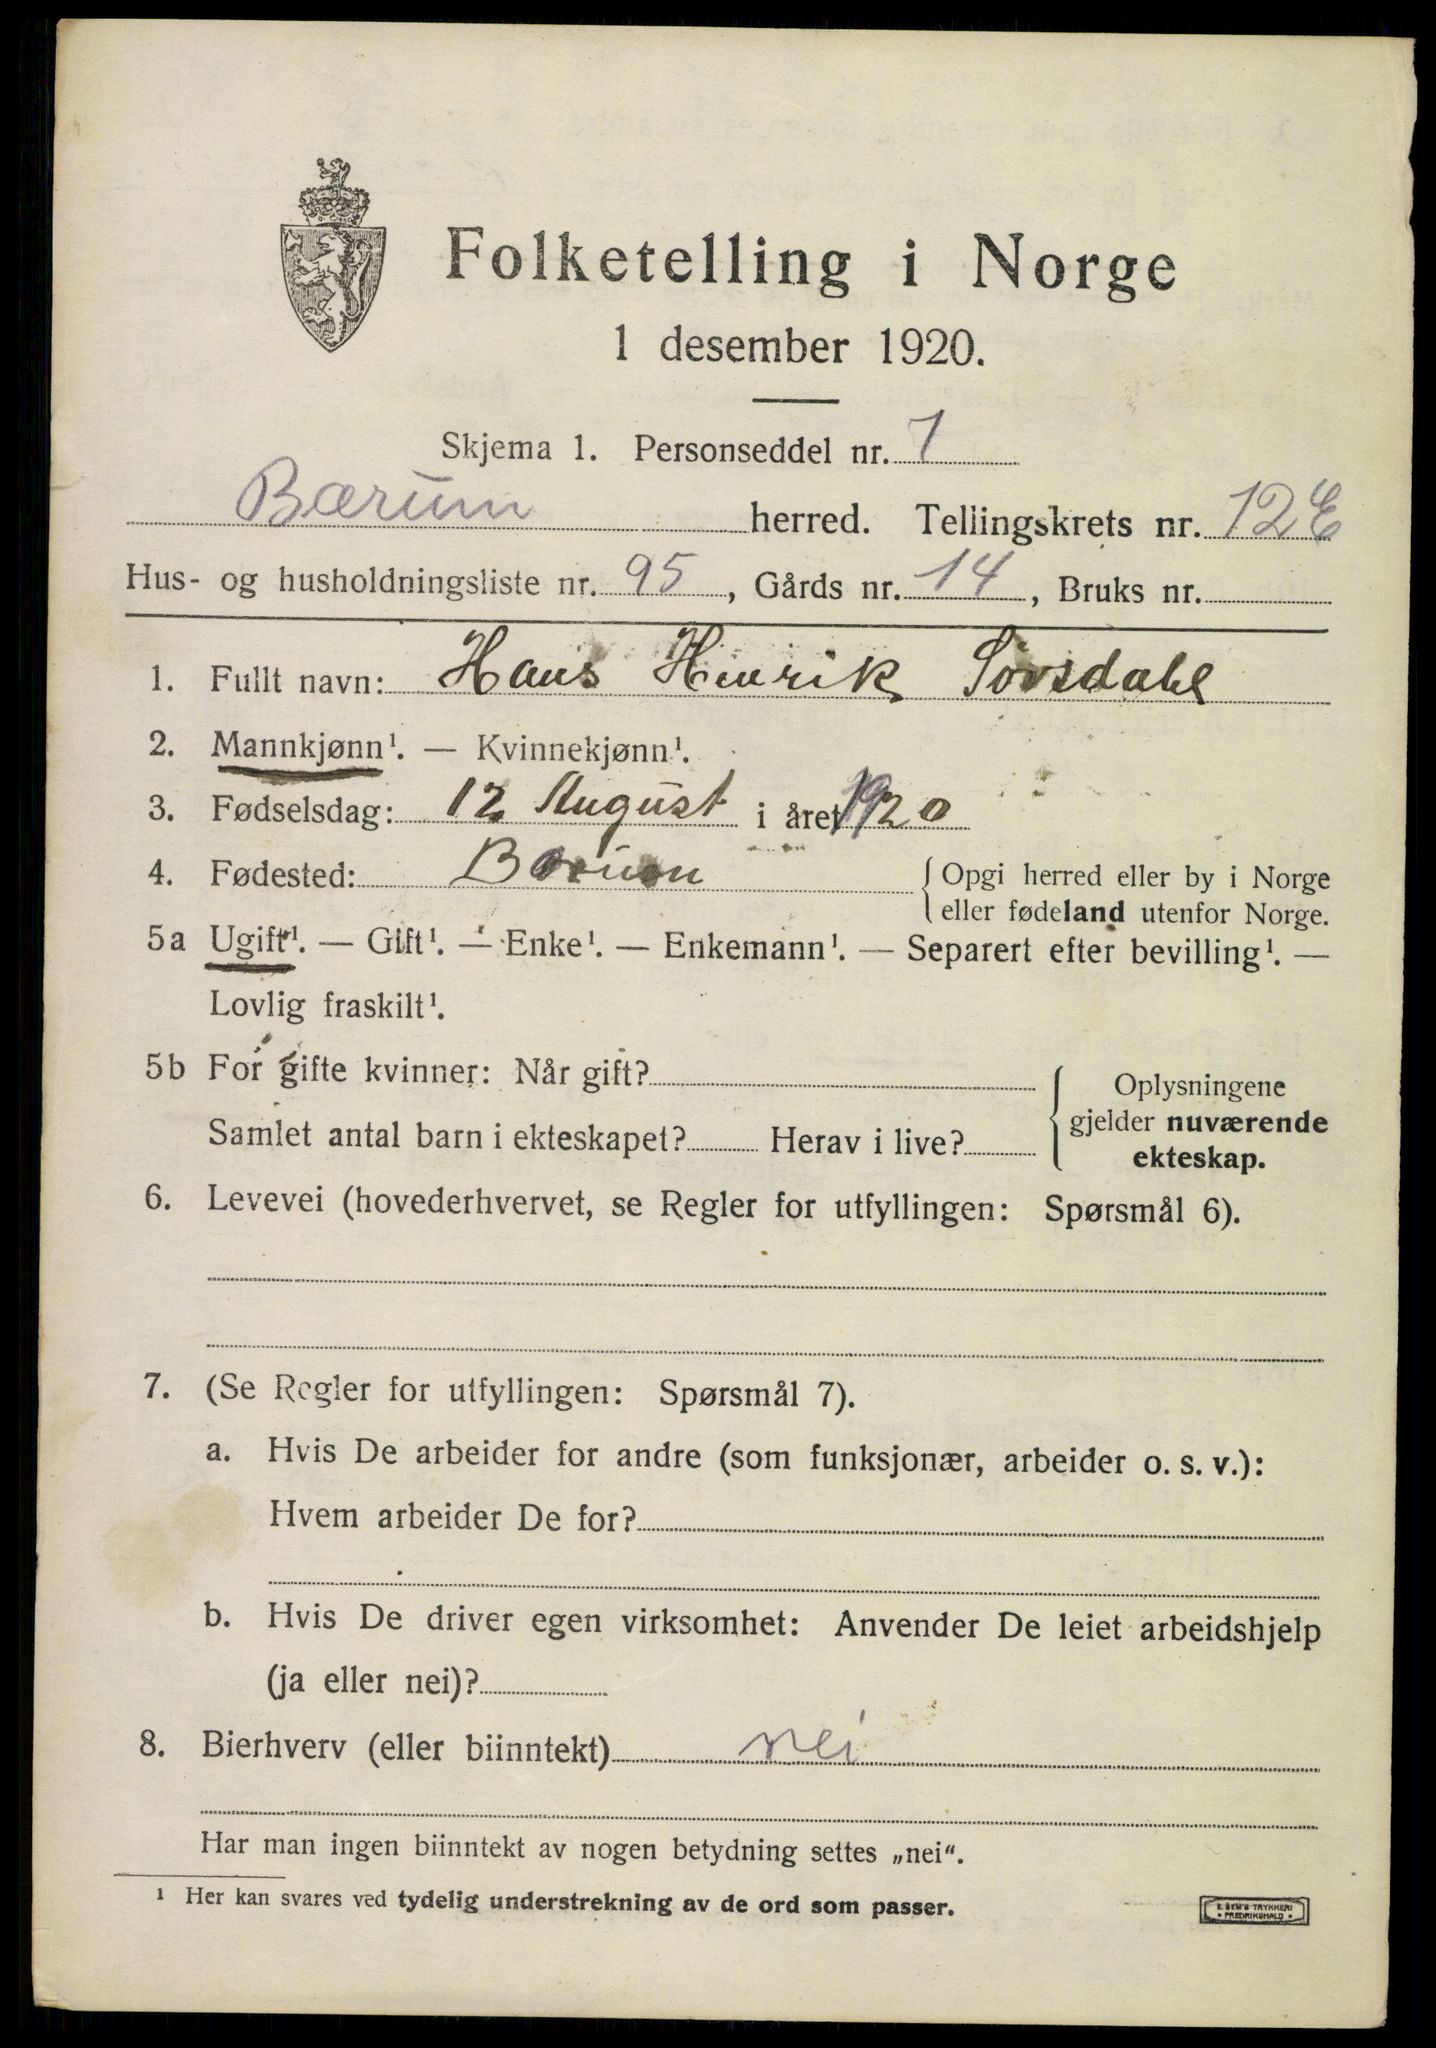 Folketelling i Norge
1 desember 1920.
Skjema 1. Personseddel nr. 7
Bærum herred. Tellingskrets nr. 12 E
Hus- og husholdningsliste nr. 95, Gårds nr. 14, Bruks nr.
1. Fullt navn: Hans Henrik
2. Mannkjønn¹. — Kvinnekjønn¹.
3. Fødselsdag: 12 August i året 1920
4. Fødested: Bærum {Opgi herred eller by i Norge
eller fødeland utenfor Norge.
5a Ugift¹. — Gift¹. — Enke¹. — Enkemann¹. — Separert efter bevilling¹. —
Lovlig fraskilt¹.
5b For gifte kvinner: Når gift?
Samlet antal barn i ekteskapet? Herav i live?
{Oplysningene
gjelder nuværende
ekteskap.
6. Levevei (hovederhvervet, se Regler for utfyllingen: Spørsmål 6).
7. (Se Regler for utfyllingen: Spørsmål 7).
a. Hvis De arbeider for andre (som funksjonær, arbeider o. s. v.):
Hvem arbeider De for?
b. Hvis De driver egen virksomhet: Anvender De leiet arbeidshjelp
(ja eller nei)?
8. Bierhverv (eller biinntekt) nei
Har man ingen biinntekt av nogen betydning settes „nei“.
¹ Her kan svares ved tydelig understrekning av de ord som passer.
E. SEM'S TRYKKERI
• FREDRIKSHALD •